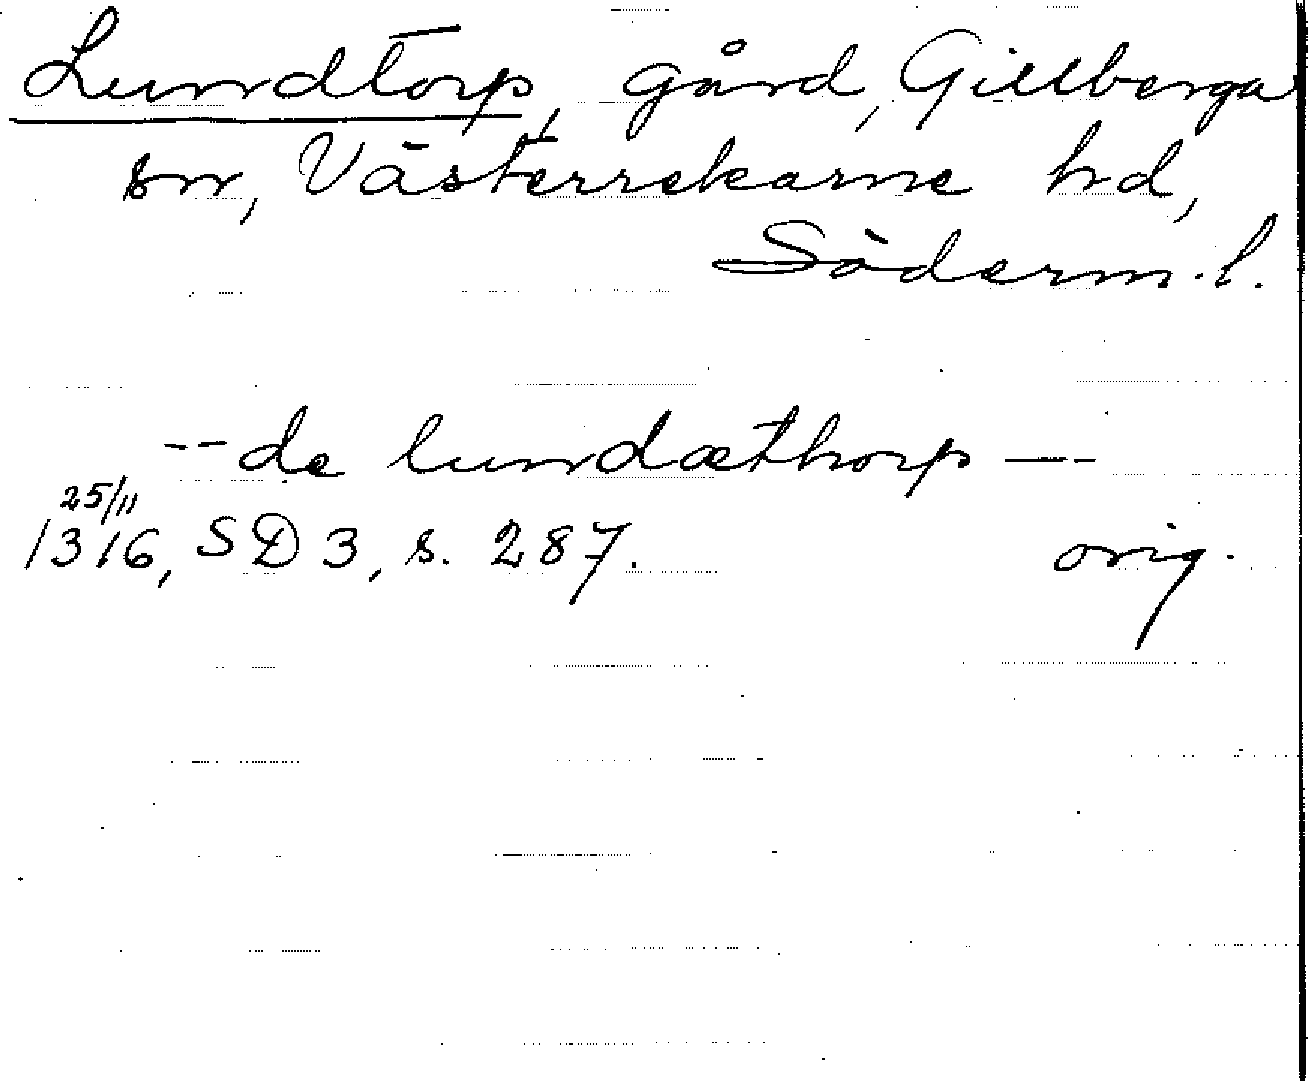 Lundtorp, gård, Gillberga
sn, Västerrekarne hd,
Söderm. l.
-- de lundæthorp --
25/11
1316, SD 3, s. 287. orig.